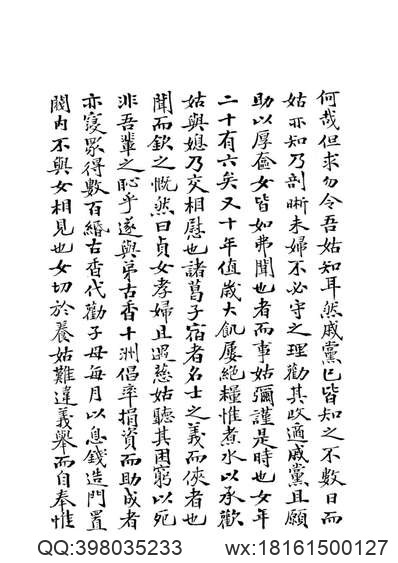 何哉但求勿令吾姑知耳然戚黨已皆知之不數日而
姑亦知乃剖晰未婦不必守之理勸其改適戚黨且願
助以厚奩女皆如弗聞也者而事姑彌謹是時也女年
二十有六矣又十年值歲大飢屢絶糧惟煮水以承歡
姑與媳乃交相慰也諸葛子宿者名士之義而俠者也
聞而欽之慨然曰貞女孝婦且遐慈姑聽其困窮以死
非吾輩之恥乎遂與弟古香十洲倡率捐資而助成者
亦寖眾得數百緡古香代勸子母每月以息錢造門置
閾内不與女相見也女切於養姑難違義舉而自奉惟
QQ:398035233 wx:18161500127